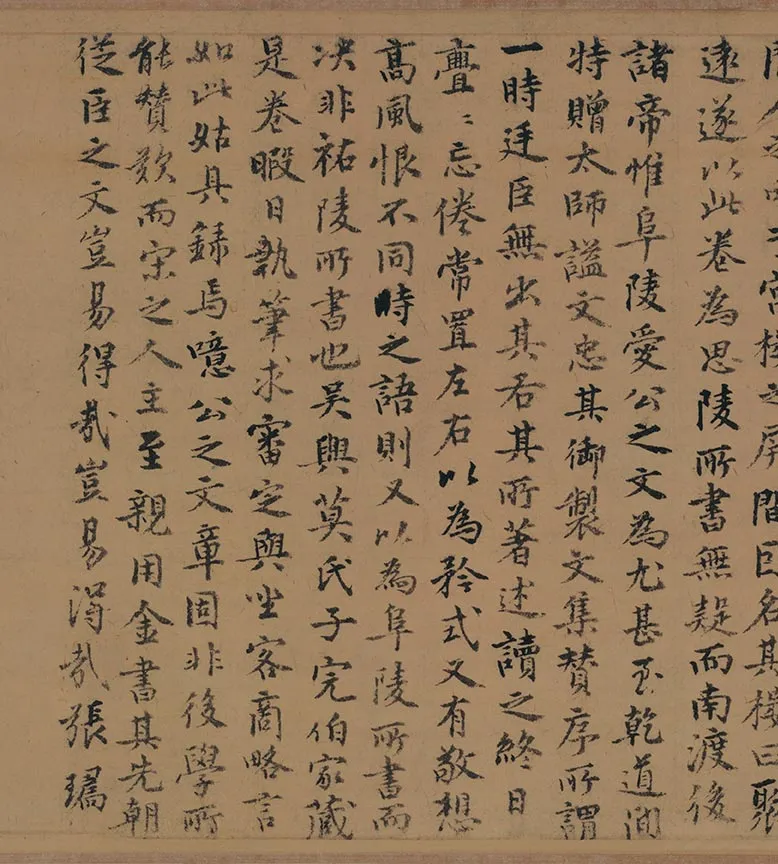 樓之屏間名其樓曰聚
遠遂以此卷為思陵所書無疑而南渡後
諸帝惟阜陵愛公之文為尤甚至乾道間
特贈太師謚文忠其御製文集贊序所謂
一時廷臣無出其右其所著述讀之終日
亹〻忘倦常置左右以為矜式又有敬想
高風恨不同時之語則又以為阜陵所書而
决非祐陵所書也吳興莫氏子完伯家藏
是卷暇日執筆求審定與坐客商略言
如此姑具録焉噫公之文章固非後學所
能贊歎而宋之人主至親用金書其先朝
從臣之文豈易得哉豈易得哉張